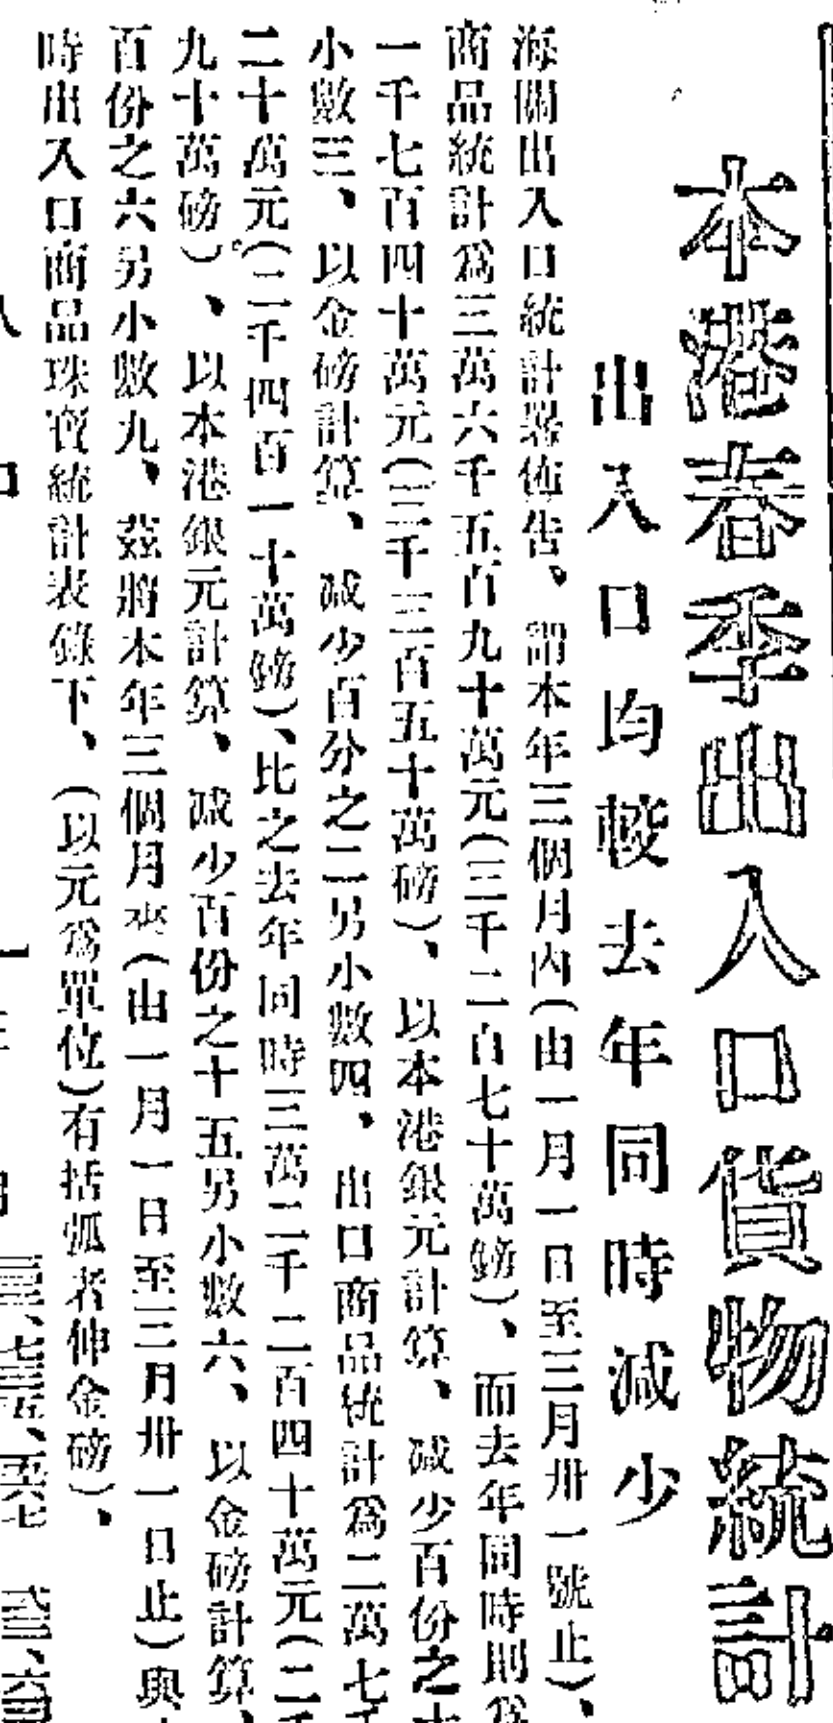 本港春季出入口貨物統計
出入口均較去年同時減少
海關出入口統計署佈告、謂本年三個月內(由一月一日至三月卅一號止)、
商品統計爲三萬六千五百九十萬元(三千二百七十萬鎊)、而去年同時則爲
一千七百四十萬元(三千三百五十萬磅)、以本港銀元計算、減少百份之十
小數三、以金磅計算、減少百分之二另小數四、出口商品統計爲二萬七千
二十萬元(二千四百一十萬鎊)、比之去年同時三萬二千二百四十萬元(二千
九十萬磅)、以本港銀元計算、減少百份之十五另小數六、以金磅計算、
百份之六另小數九、茲將本年三個月來(由一月一日至三月卅一日止)與
時出入口商品珠寶統計表錄下、(以元爲單位)有括弧者伸金磅)、